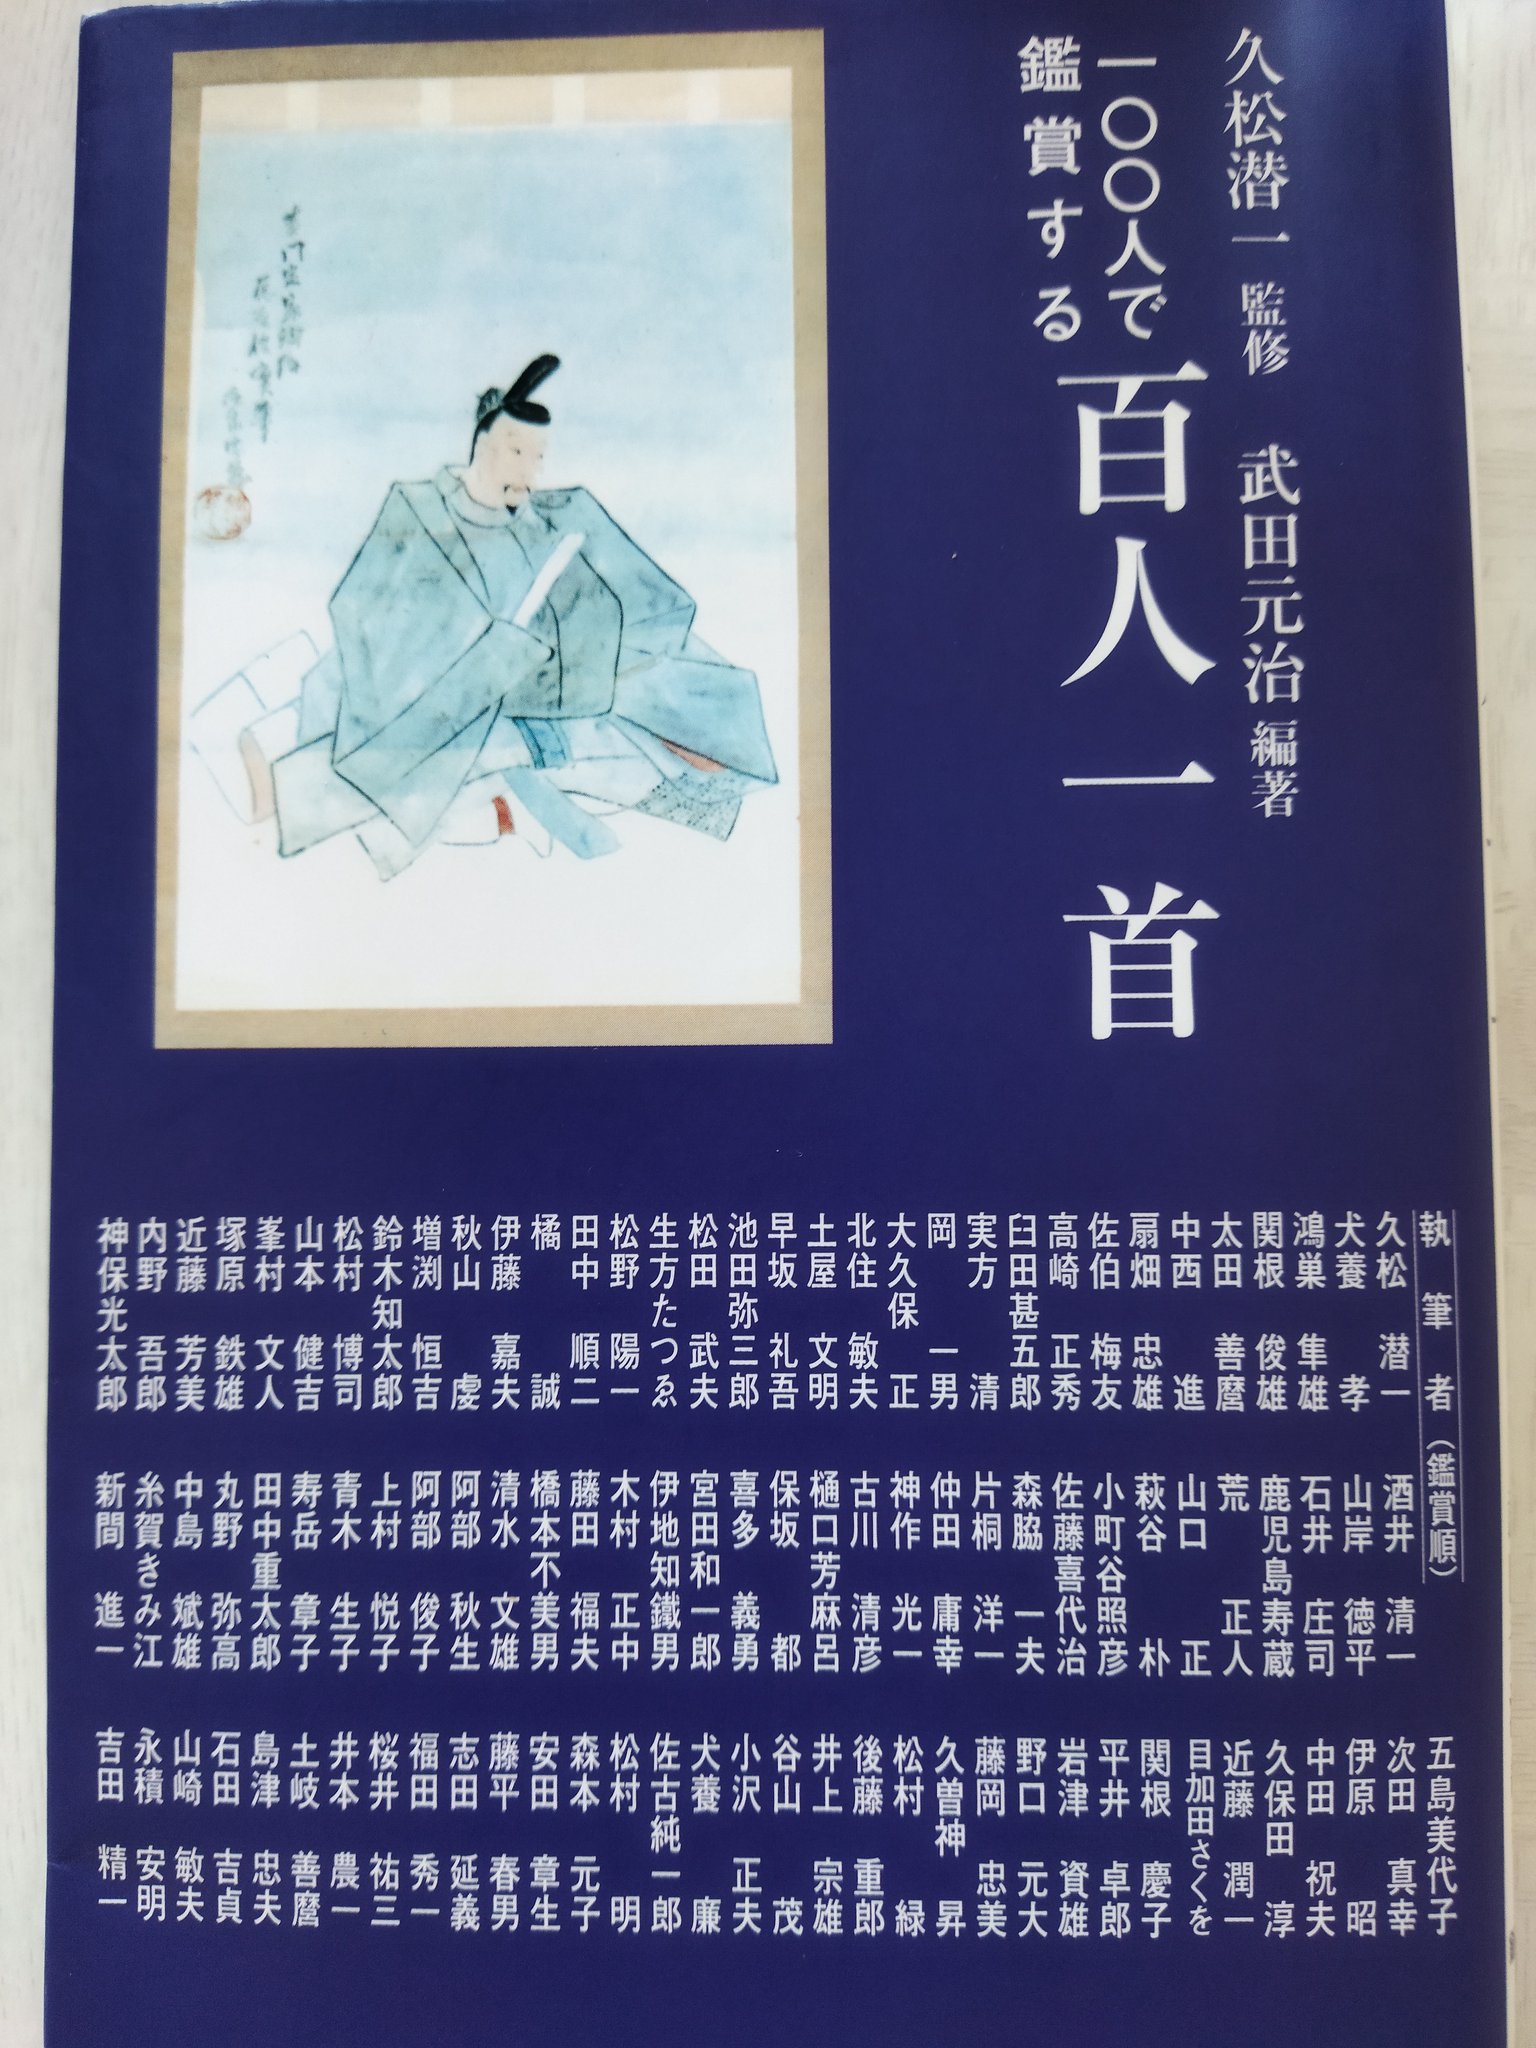 久松潜一 監修 武田元治 編著
一〇〇人で
鑑賞する
百人一首
執筆者（鑑賞順）
久松 潜一
犬養 孝
鴻巣 隼雄
関根 俊雄
太田 善麿
中西 進
扇畑 忠雄
佐伯 梅友
高崎 正秀
臼田甚五郎
実方 清
岡 一男
大久保 正
北住 敏夫
土屋 文明
早坂 礼吾
池田弥三郎
松田 武夫
生方たつゑ
松野 陽一
田中 順二
橘 誠
伊藤 嘉夫
秋山 虔
増渕 恒吉
鈴木知太郎
松村 博司
山本 健吉
峯村 文人
塚原 鉄雄
近藤 芳美
内野 吾郎
神保光太郎
酒井 清一
山岸 徳平
石井 庄司
鹿児島寿蔵
荒 正人
山口 正
萩谷 朴
小町谷照彦
佐藤喜代治
森脇 一夫
片桐 洋一
仲田 庸幸
神作 光一
古川 清彦
樋口芳麻呂
保坂 都
喜多 義勇
宮田和一郎
伊地知鐵男
木村 正中
藤田 福夫
橋本不美男
清水 文雄
阿部 秋生
阿部 俊子
上村 悦子
青木 生子
寿岳 章子
田中重太郎
丸野 弥高
中島 斌雄
糸賀きみ江
新間 進一
五島美代子
次田 真幸
伊原 昭
中田 祝夫
久保田 淳
近藤 潤一
目加田さくを
関根 慶子
平井 卓郎
岩津 資雄
野口 元大
藤岡 忠美
久曽神 昇
松村 緑
後藤 重郎
井上 宗雄
谷山 茂
小沢 正夫
犬養 廉
佐古純一郎
松村 明
森本 元子
安田 章生
藤平 春男
志田 延義
福田 秀一
桜井 祐三
井本 農一
土岐 善麿
島津 忠夫
石田 吉貞
山崎 敏夫
永積 安明
吉田 精一